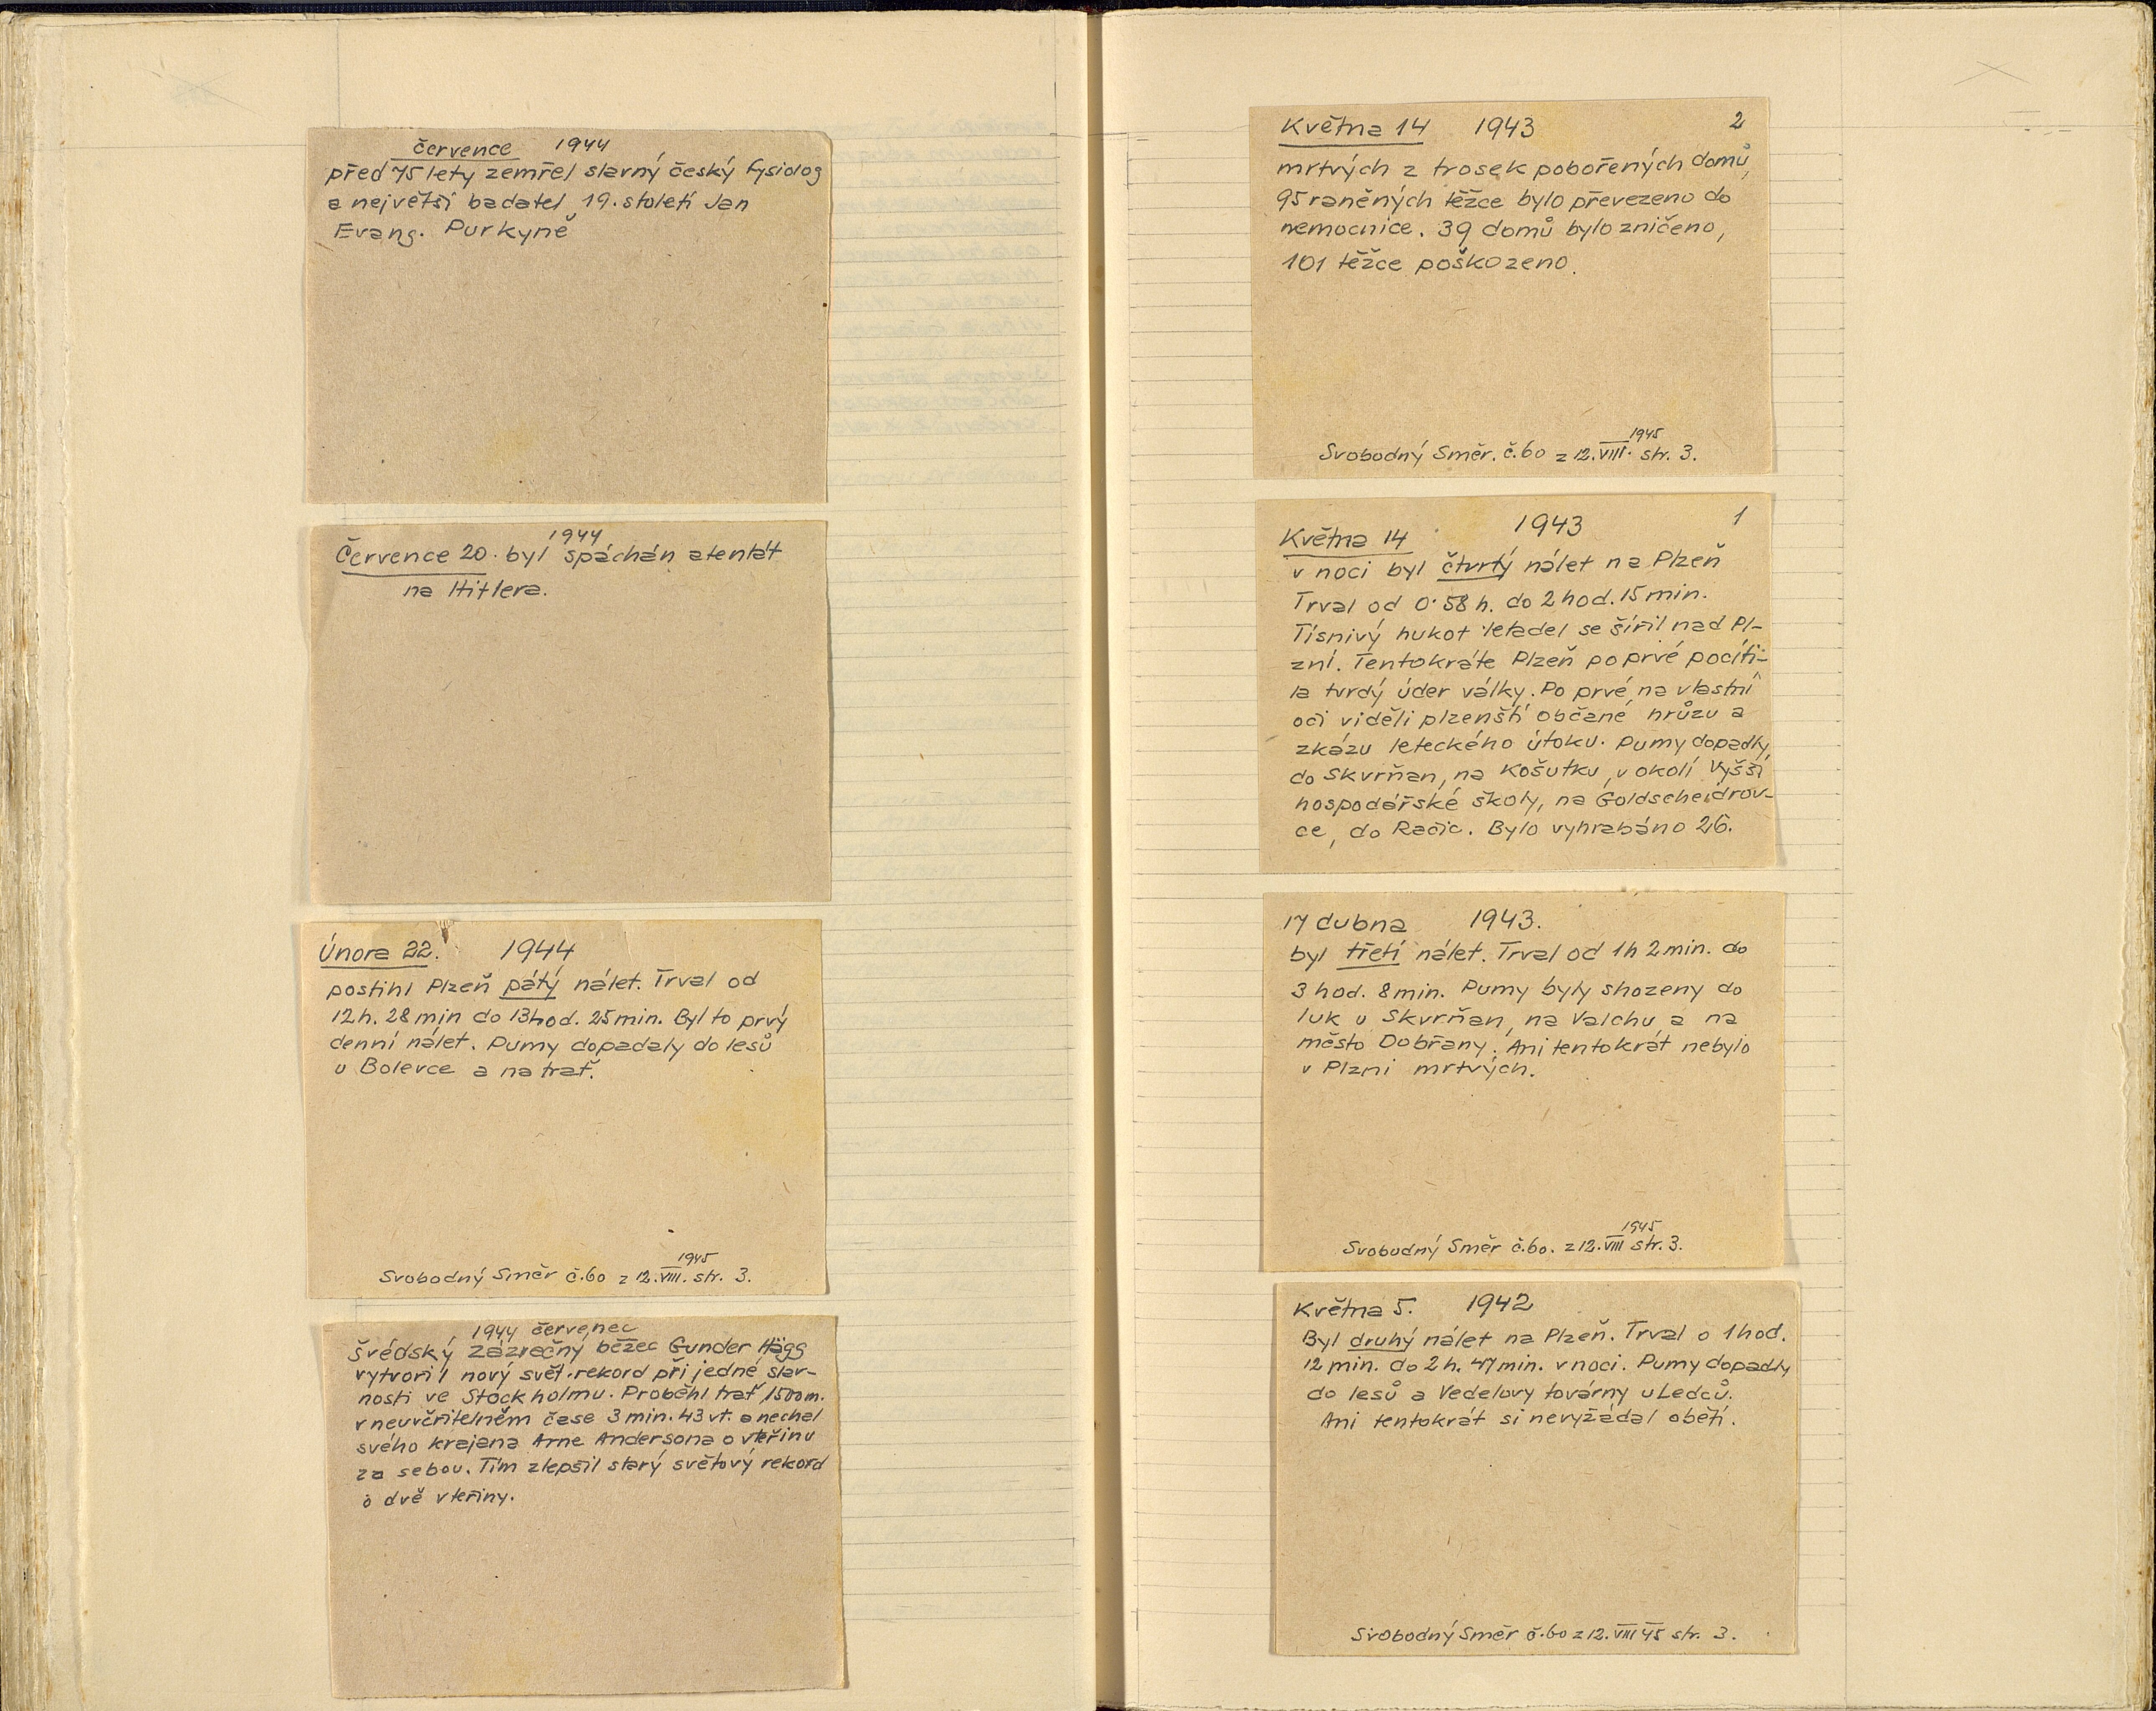 července 1944
před 75 lety zemřel slavný český fysiolog
a největší badatel 19. století Jan
Evang. Purkyně
1944
Července 20. byl spáchán atentát
na Hitlera.
Února 22. 1944
postihl Plzeň pátý nálet. Trval od
12h. 28 min do 13hod. 25min. Byl to prvý
denní nálet. Pumy dopadaly do lesů
u Bolevce a na trať.
1945
Svobodný Směr č.60 z 12.VIII. str. 3.
1944 červenec
švédský zázračný běžec Gunder Hägg
vytvořil nový svět.rekord při jedné slav-
nosti ve Stockholmu. Proběhl trať 1500m.
v neuvěřitelném čase 3 min. 43 vt. a nechal
svého krajana Arne Andersona o vteřinu
za sebou. Tím zlepšil starý světový rekord
o dvě vteřiny.
Května 14 1943 2
mrtvých z trosek pobořených domů,
95 raněných těžce bylo převezeno do
nemocnice. 39 domů bylo zničeno,
101 těžce poškozeno.
1945
Svobodný Směr. č.60 z 12.VIII. str. 3.
1943 1
Května 14
v noci byl čtvrtý nálet na Plzeň
Trval od 0.58 h. do 2 hod. 15 min.
Tísnivý hukot letadel se šířil nad Pl-
zní. Tentokráte Plzeň po prvé pocíti-
la tvrdý úder války. Po prvé na vlastní
oči viděli plzenští občané hrůzu a
zkázu leteckého útoku. Pumy dopadly,
do Skvrňan, na Košutku, v okolí Vyšší
hospodářské školy, na Goldscheidrov-
ce, do Račic. Bylo vyhrabáno 26.
17 dubna 1943.
byl třetí nálet. Trval od 1h 2min. do
3 hod. 8min. Pumy byly shozeny do
luk u Skvrňan, na Valchu a na
město Dobřany. Ani tentokrát nebylo
v Plzni mrtvých.
1945
Svobodný Směr č.60. z 12.VIII str. 3.
Května 5. 1942
Byl druhý nálet na Plzeň. Trval o 1hod.
12 min. do 2h. 47min. v noci. Pumy dopadly
do lesů a Vedelovy továrny u Ledců.
Ani tentokrát si nevyžádal obětí.
Svobodný Směr č.60 z 12.VIII 45 str. 3.